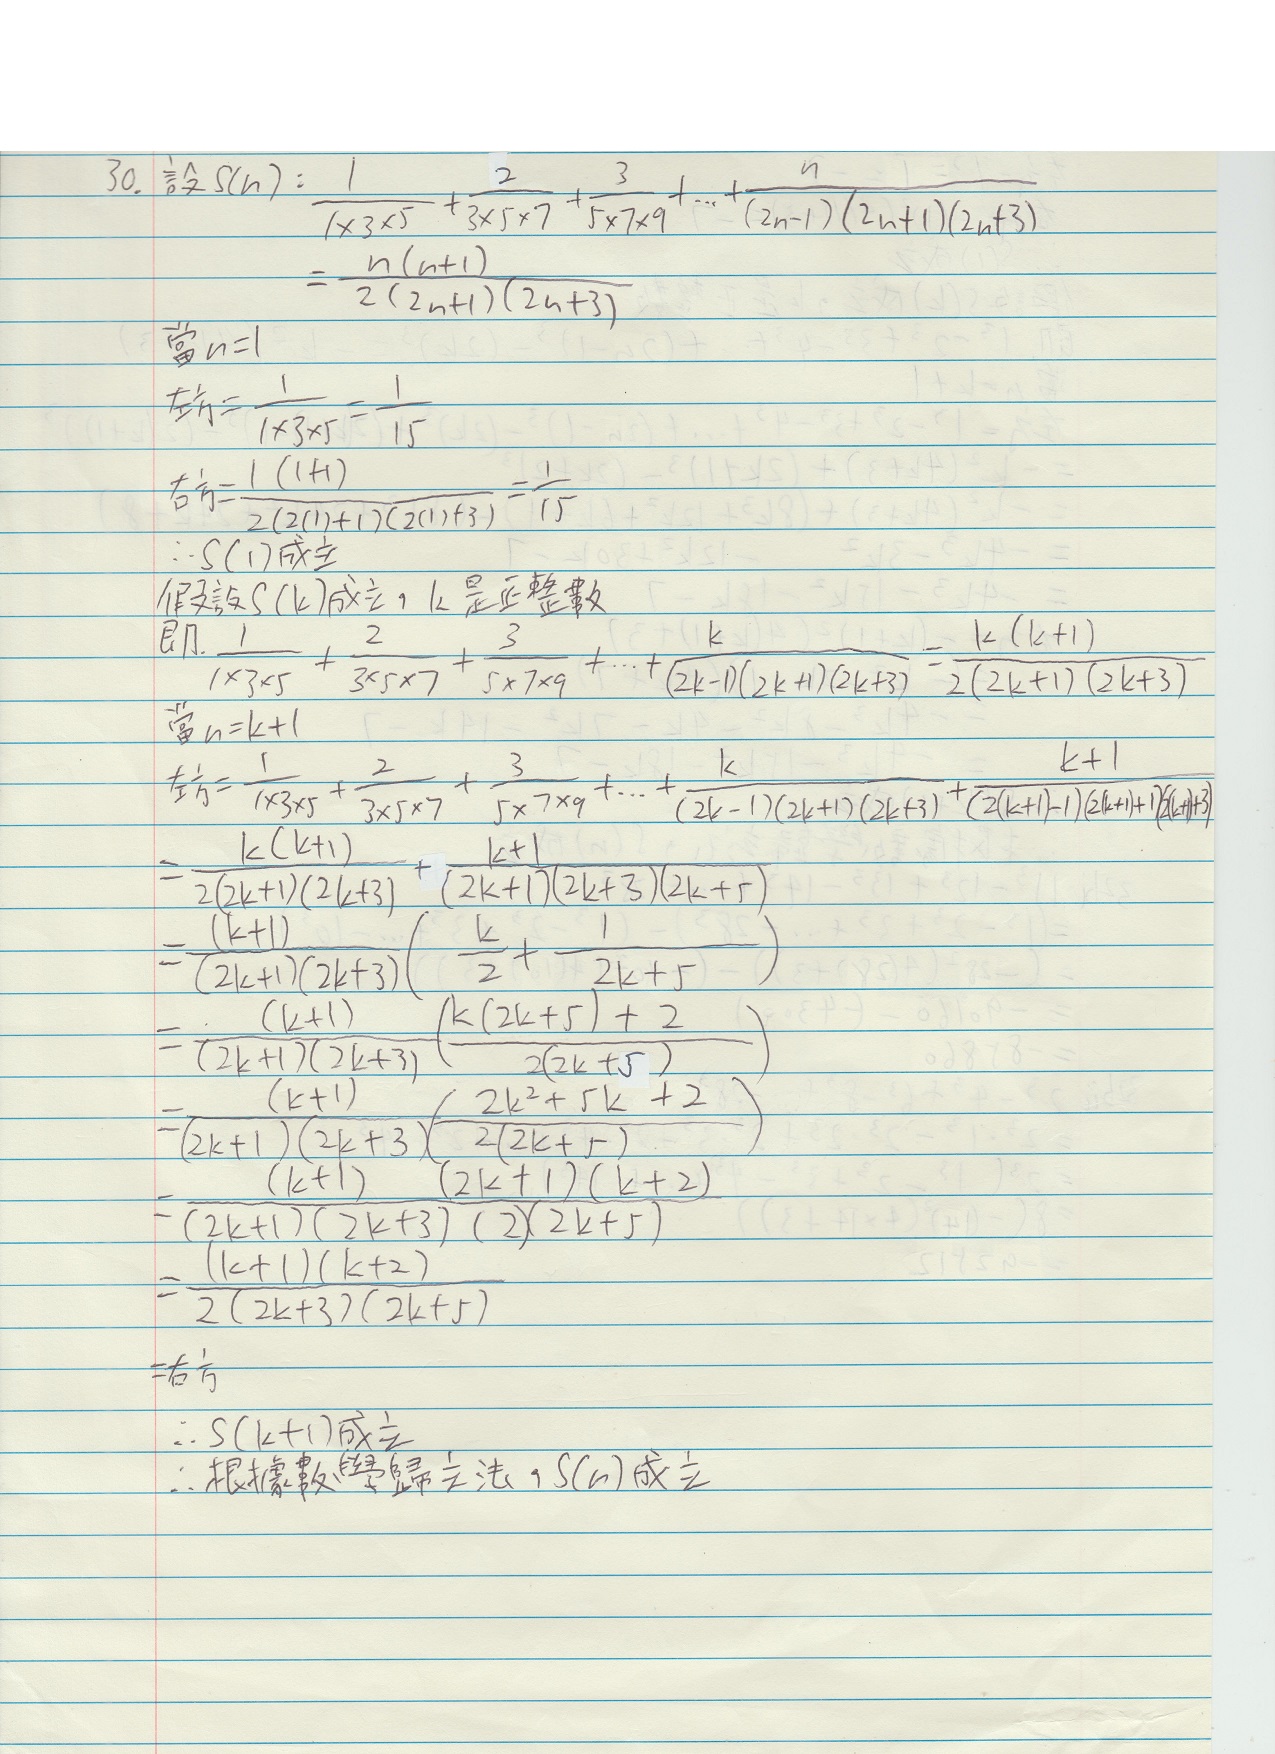 30. 設S(n): 1/(1×3×5) + 2/(3×5×7) + 3/(5×7×9) + ... + n/((2n-1)(2n+1)(2n+3))
= n(n+1)/(2(2n+1)(2n+3))
當n=1
左方= 1/(1×3×5) = 1/15
右方= 1(1+1)/(2(2(1)+1)(2(1)+3)) = 1/15
∴S(1)成立
假設S(k)成立，k是正整數
即 1/(1×3×5) + 2/(3×5×7) + 3/(5×7×9) + ... + k/((2k-1)(2k+1)(2k+3)) = k(k+1)/(2(2k+1)(2k+3))
當n=k+1
左方= 1/(1×3×5) + 2/(3×5×7) + 3/(5×7×9) + ... + k/((2k-1)(2k+1)(2k+3)) + (k+1)/((2(k+1)-1)(2(k+1)+1)(2(k+1)+3))
= k(k+1)/(2(2k+1)(2k+3)) + (k+1)/((2k+1)(2k+3)(2k+5))
= (k+1)/((2k+1)(2k+3)) (k/2 + 1/(2k+5))
= (k+1)/((2k+1)(2k+3)) ((k(2k+5)+2)/(2(2k+5)))
= (k+1)/((2k+1)(2k+3)) ((2k²+5k+2)/(2(2k+5)))
= (k+1)(2k+1)(k+2)/((2k+1)(2k+3)(2)(2k+5))
= (k+1)(k+2)/(2(2k+3)(2k+5))
=右方
∴S(k+1)成立
∴根據數學歸立法，S(n)成立